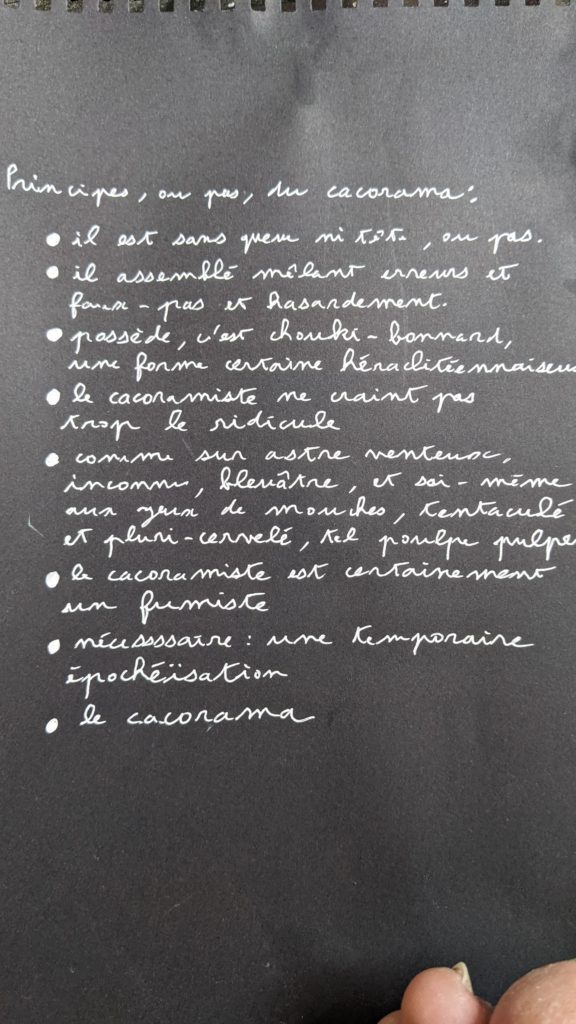 Principes, ou pas, du cacorama:
• il est sans queue ni tête, ou pas.
• il assemblé mêlant erreurs et
faux-pas et hasardement.
• possède, c'est chouki-bonnard,
une forme certaine héraclitéennaiseu
• le cacoramiste ne craint pas
trop le ridicule
• comme sur astre venteux,
inconnu, bleuâtre, et soi-même
aux yeux de mouches, tentaculé
et pluri-cervelé, tel poulpe pulpe
• le cacoramiste est certainement
un fumiste
• nécusssaire: une temporaire
épochéïsation
• le cacorama